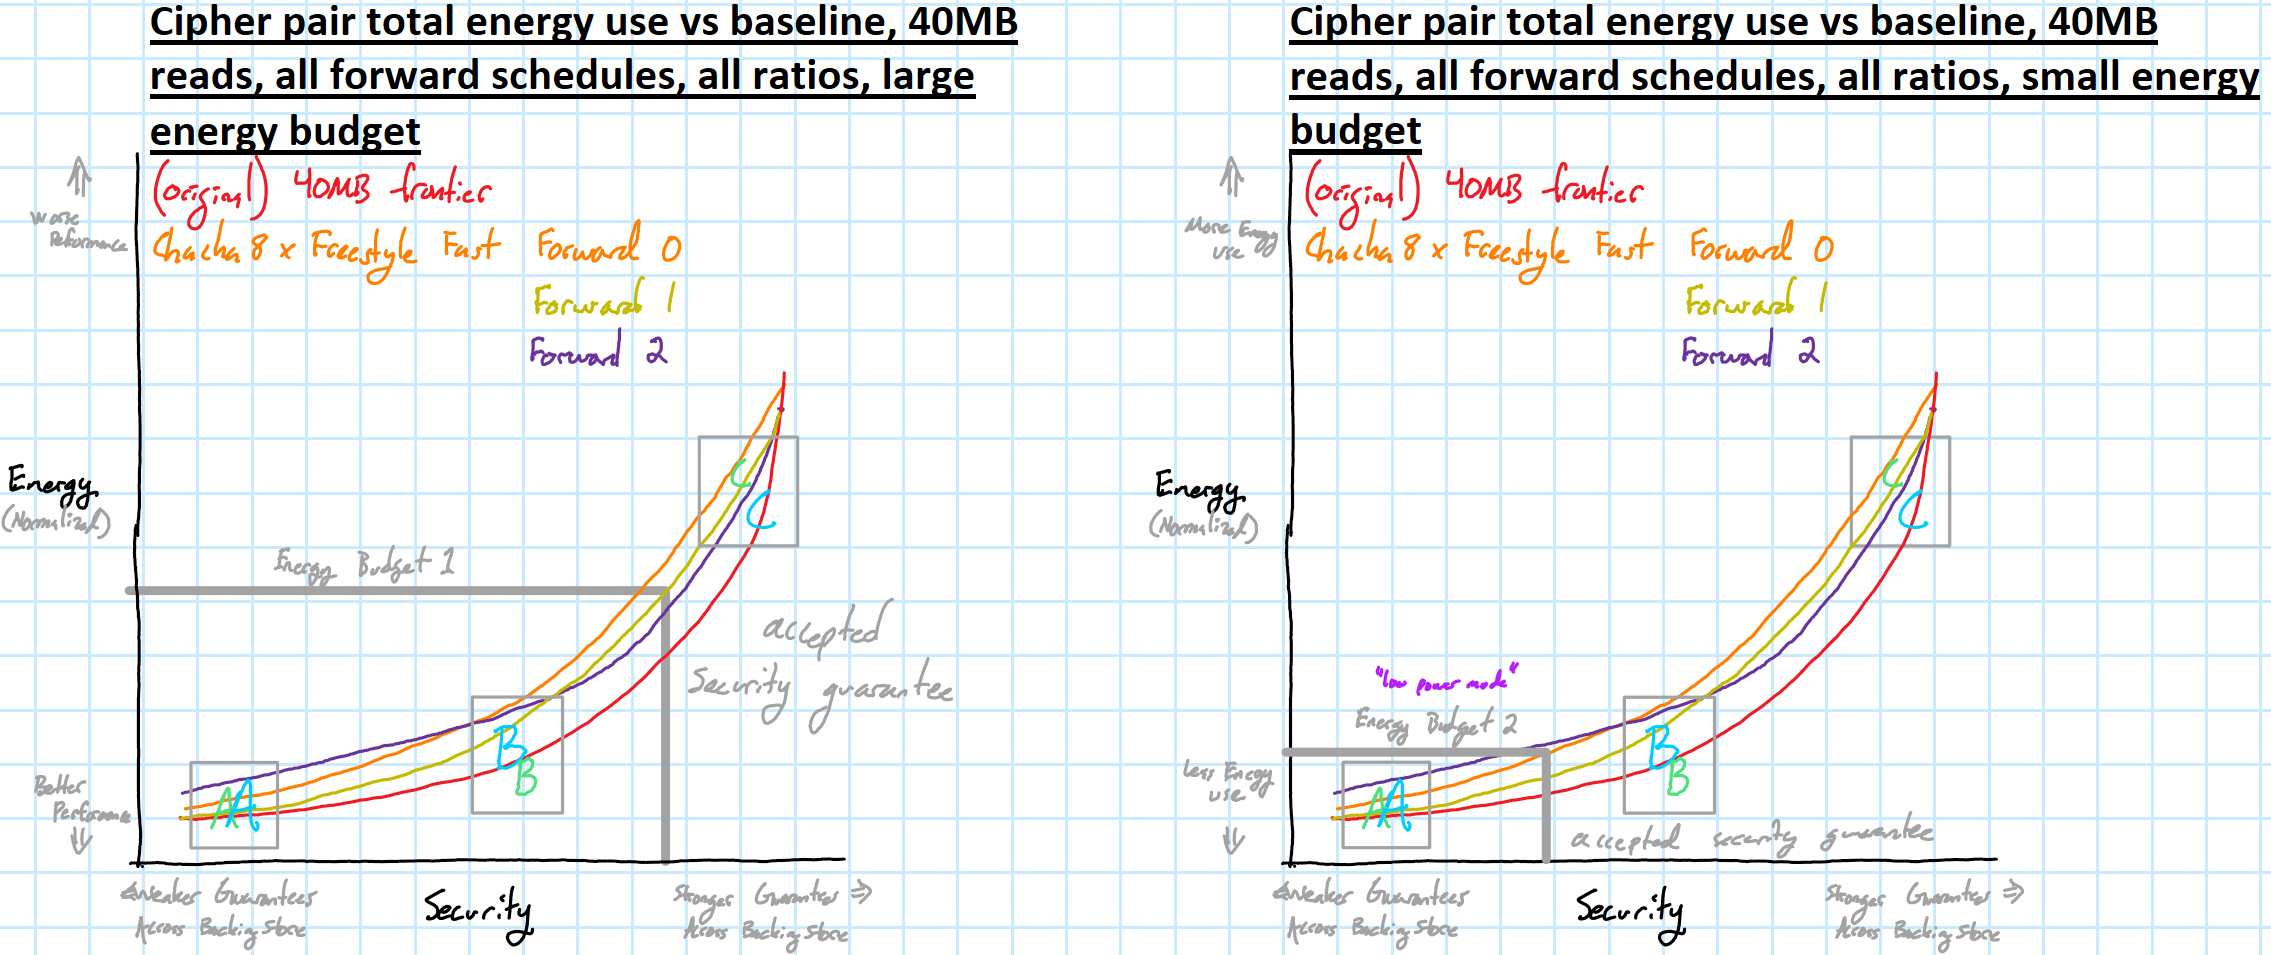 Cipher pair total energy use vs baseline, 40MB
reads, all forward schedules, all ratios, large
energy budget
(original) 40MB frontier
Worse
Performance
Chacha8 x Freestyle Fast Forward 0
Forward 1
Forward 2
C
Energy
(Normalized)
C
Energy Budget 1
accepted
Security guarantee
B
B
Better
Performance
A A
<Weaker Guarantees
Across Backing Store
Security
Stronger Guarantees =>
Across Backing Store
Cipher pair total energy use vs baseline, 40MB
reads, all forward schedules, all ratios, small energy
budget
(original) 40MB frontier
More Energy
use
Chacha8 x Freestyle Fast Forward 0
Forward 1
Forward 2
C
Energy
(Normalized)
C
"low power mode"
Energy Budget 2
B
B
Less Energy
use
A A
accepted security guarantee
<Weaker Guarantees
Across Backing Store
Security
Stronger Guarantees =>
Across Backing Store